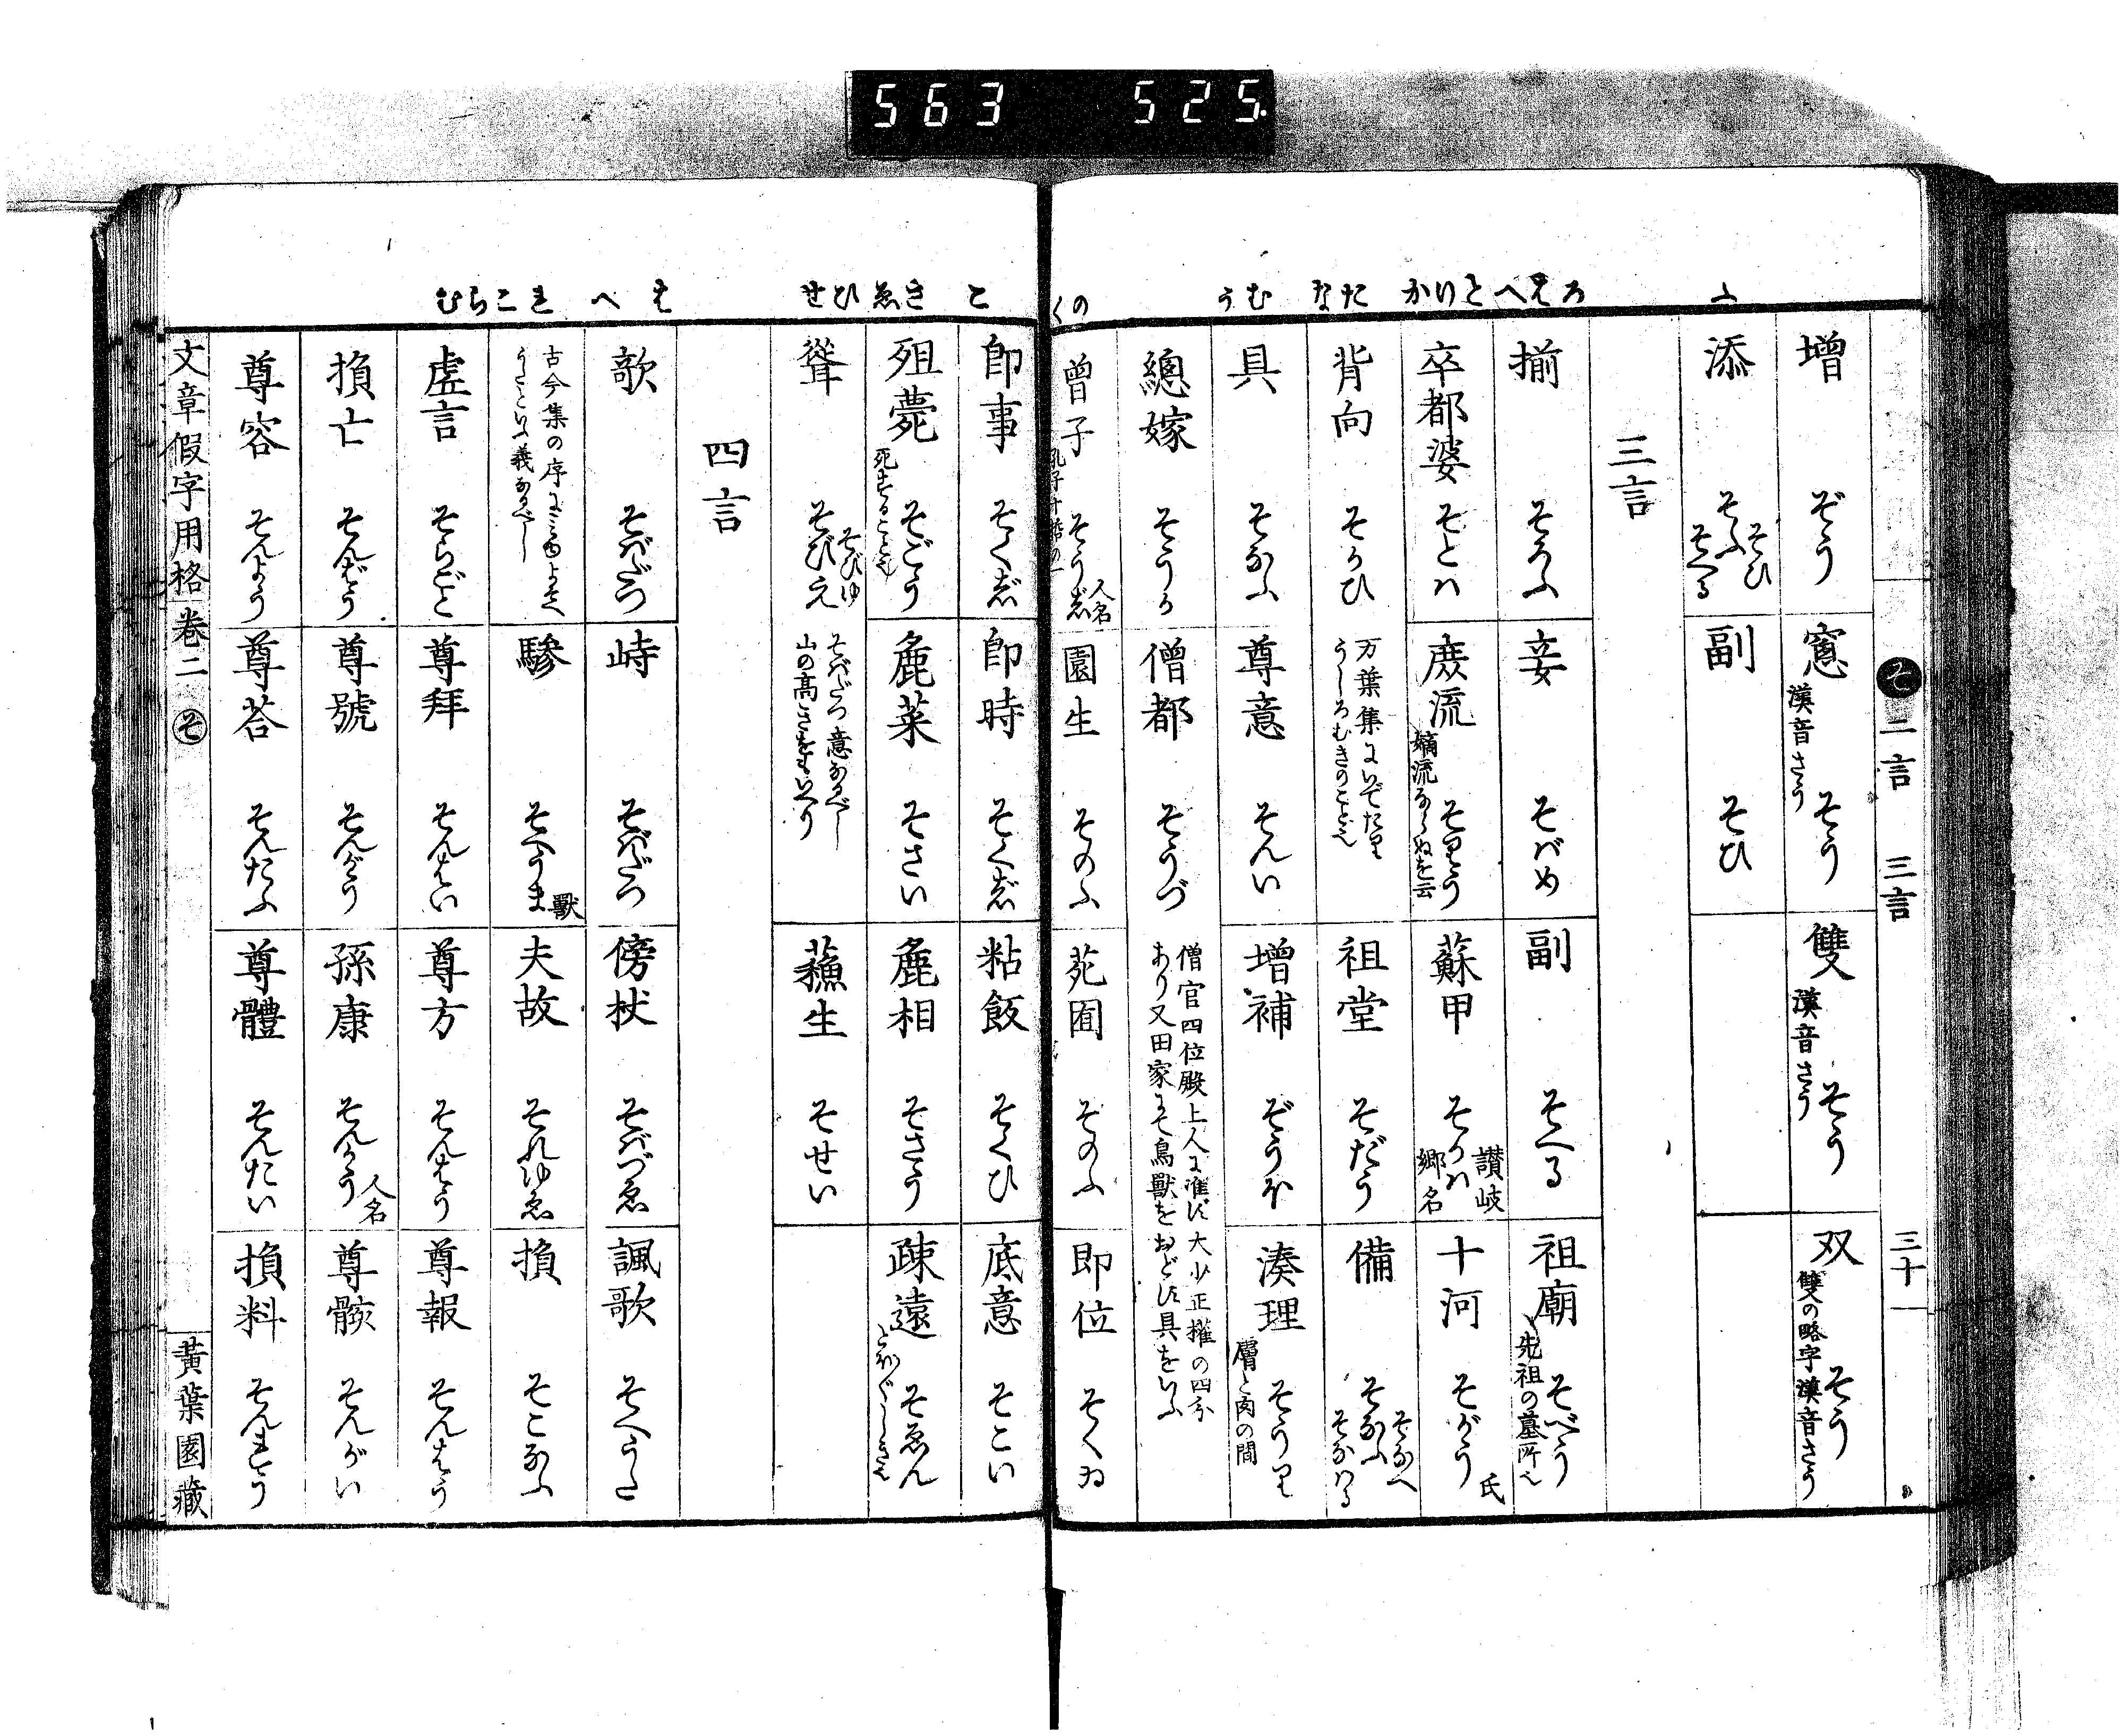 563 525.
そ 二言 三言 三十
ふ
ろ
はへ
とりか
たな
むう
のく
増 ぞう
窻 漢音さう そう
雙 漢音さう そう
双 雙の略字漢音さう そう
添 そひ そふ そへる
副 そひ
三言
揃 そろふ
妾 そばめ
副 そへる
祖廟 先祖の墓所也 そべう
卒都婆 そとハ
庶流 嫡流ならぬを云 そりう
蘇甲 そかハ 讃岐郷名
十河 そがう 氏
背向 そかひ 万葉集にいでたり うしろむきのこと也
祖堂 そだう
備 そなへ そなふ そなハる
具 そなふ
尊意 そんい
増補 ぞうほ
湊理 膚と肉の間 そうり
總嫁 そうか
僧都 そうづ 僧官四位殿上人に准ず大少正權の四分あり又田家にて鳥獸をおどす具をいふ
曽子 孔子十哲の一 そうし 人名
園生 そのふ
苑囿 そのふ
即位 そくゐ
こ
きゑ
ひせ
は
へ
れこらむ
即事 そくじ
即時 そくじ
粘飯 そくひ
底意 そこい
殂薨 死することを也 そごう
麁菜 そさい
麁相 そさう
疎遠 とほ〲しき也 そゑん
聳 そびゆ そびえ そばだつ意なるべし 山の高きをもいへり
蘓生 そせい
四言
欹 そばだつ
峙 そばだつ
傍杖 そばづゑ
諷歌 そへうた
古今集の序にみゆよそへうたといふ義なるべし
驂 そへうま 獸
夫故 それゆゑ
損 そこなふ
虚言 そらごと
尊拜 そんはい
尊方 そんはう
尊報 そんほう
損亡 そんばう
尊號 そんがう
孫康 そんかう 人名
尊骸 そんがい
尊容 そんよう
尊荅 そんたふ
尊體 そんたい
損料 そんれう
文章假字用格 卷二 そ 黄葉園藏